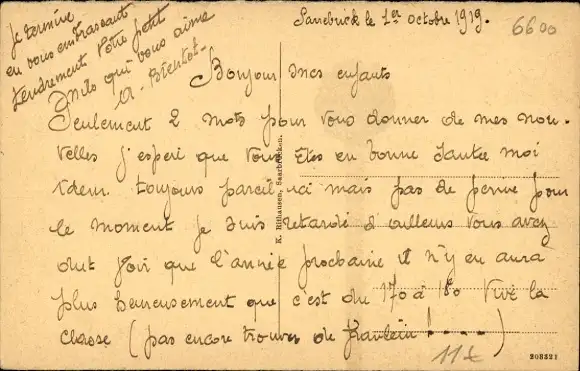 Sarrebrück le 1er octobre 1919.
6600
Bonjour mes enfants
Seulement 2 mots pour vous donner de mes nou-
velles j'espère que vous êtes en bonne santée moi
idem. toujours pareil ici mais pas de perme pour
le moment je suis retardé d'ailleurs vous avez
dut voir que l'année prochaine il n'y en aura
plus heureusement que c'est du 170 à 180 Vive la
classe (pas encore trouver de fraulein ! - - - -)
Je termine
en vous embrassant
tendrement Votre petit
Mils qui vous aime
A - Bientot -
K. Rithausen, Saarbrücken.
11£
208321